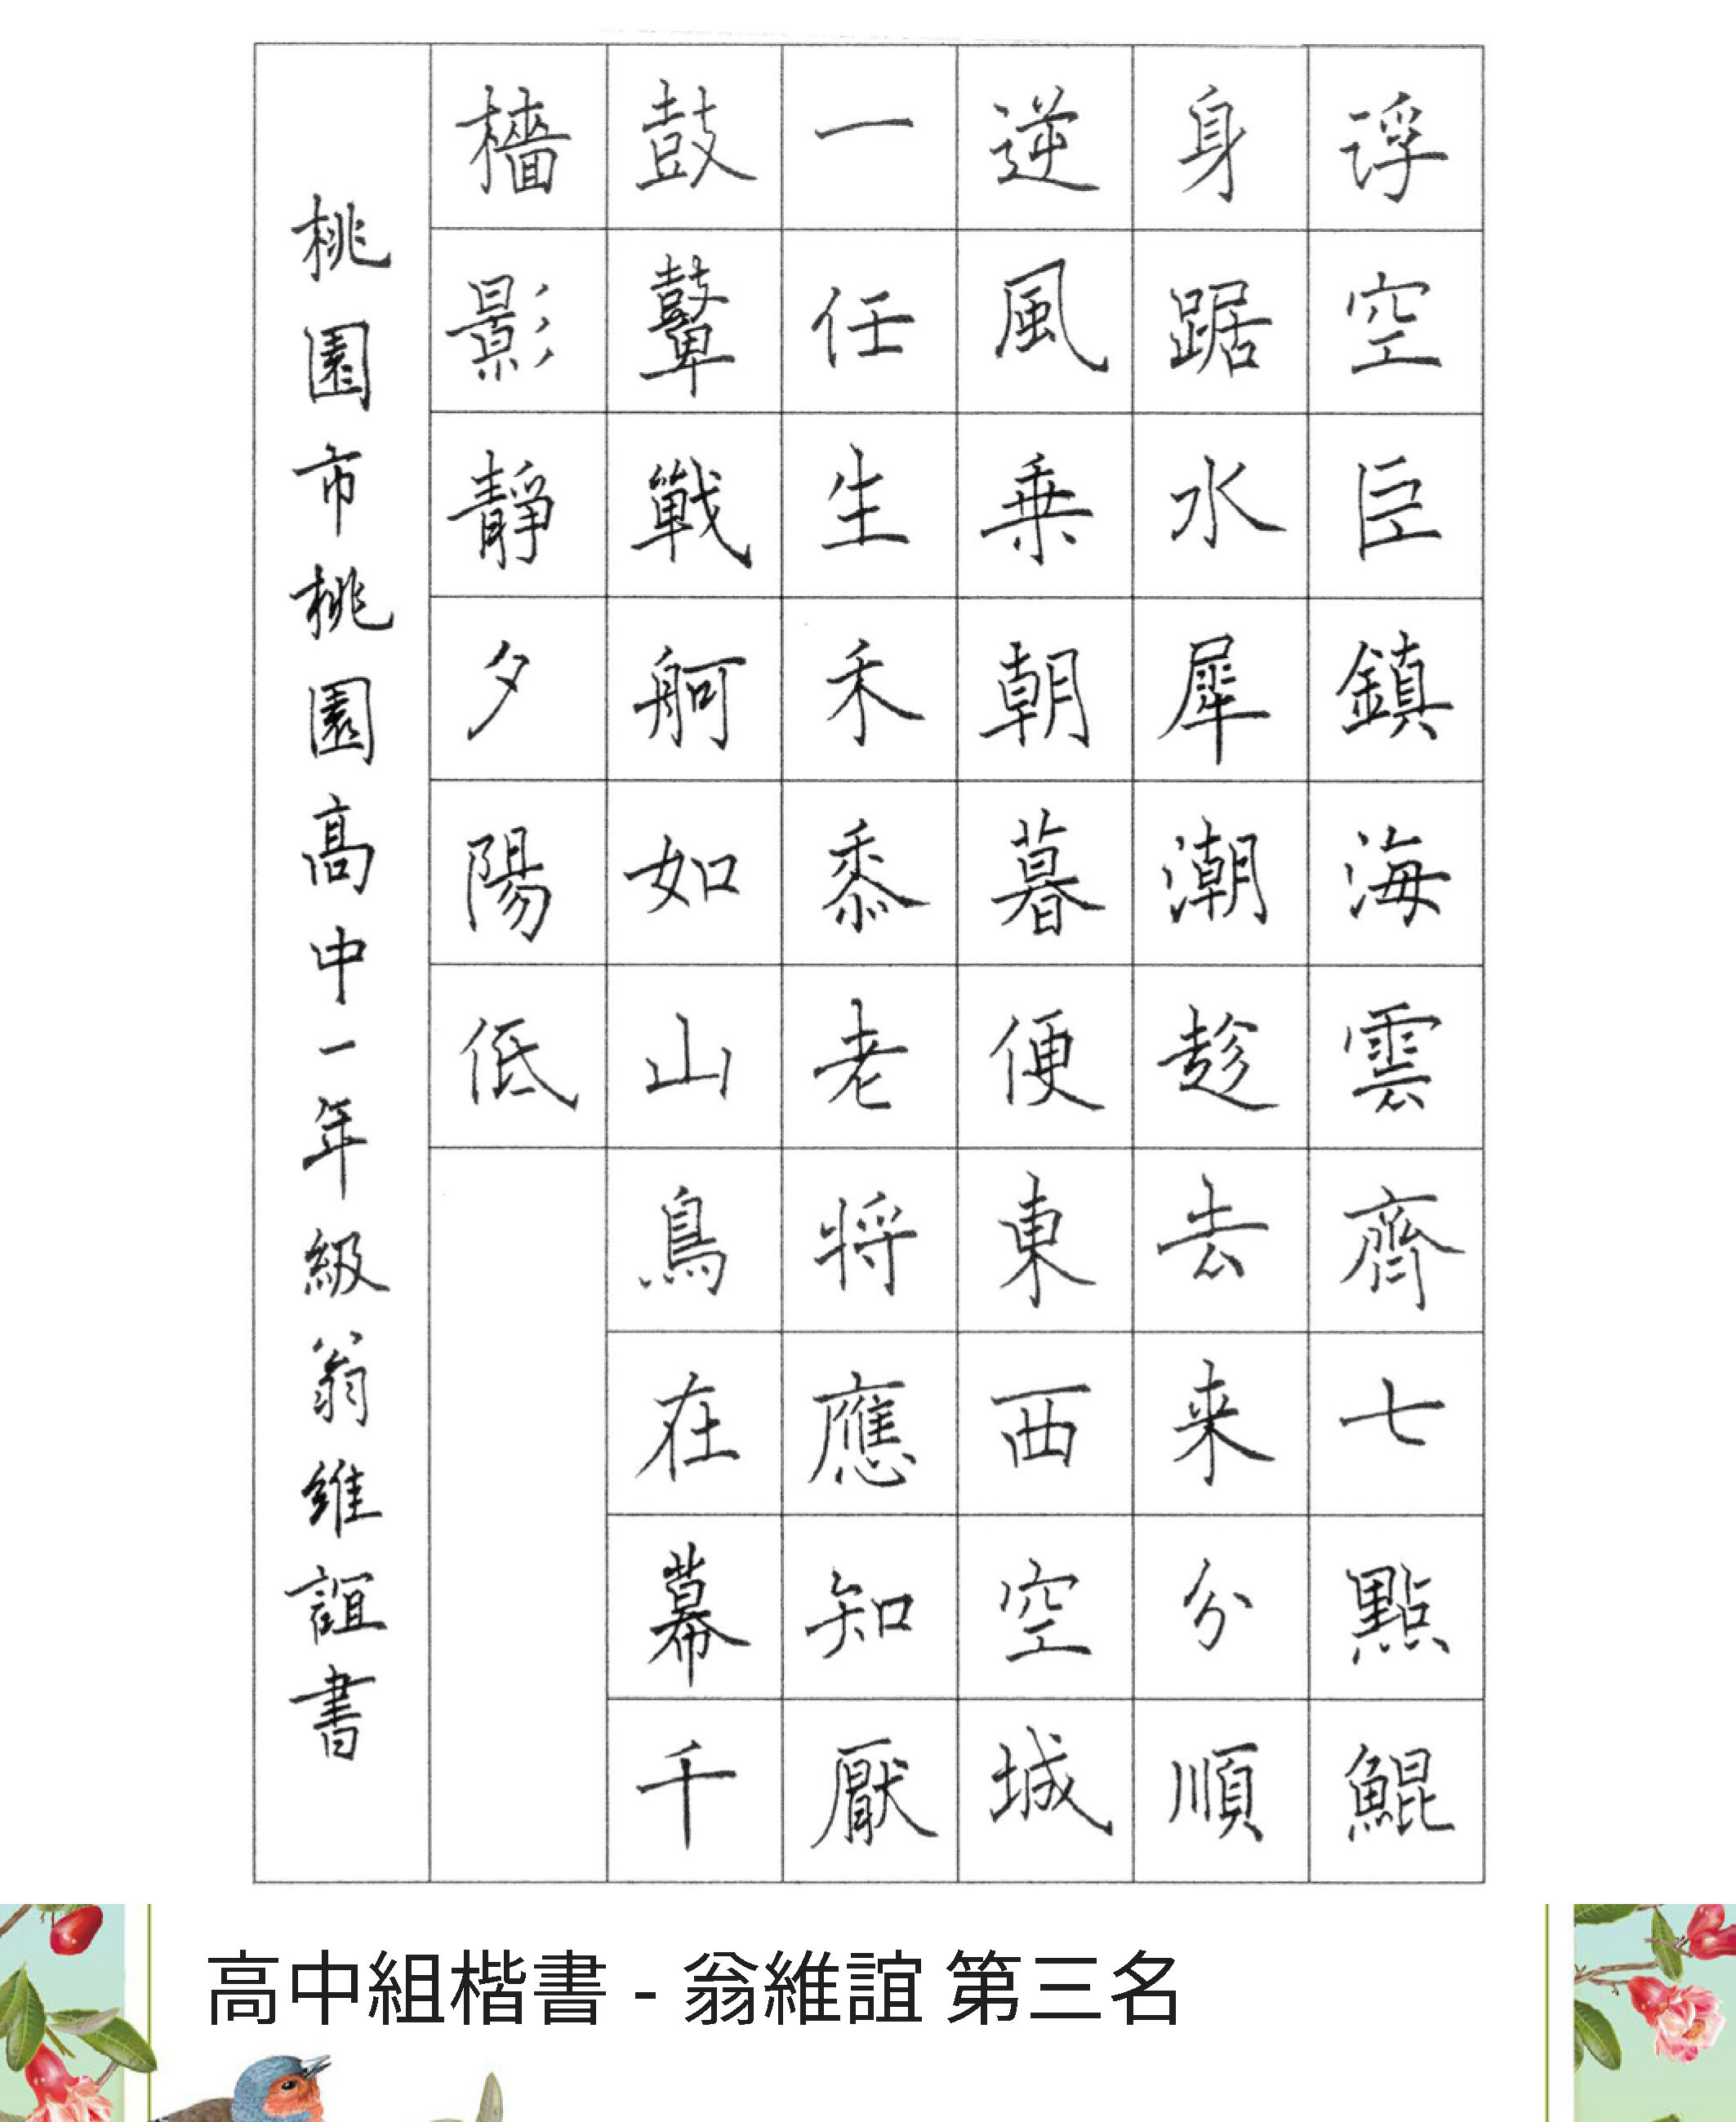 浮空巨鎮海雲齊七點鯤
身踞水犀潮趁去来分順
逆風乗朝暮便東西空城
一任生禾黍老將應知厭
鼓鼙戰舸如山鳥在幕千
檣影靜夕陽低
桃園市桃園高中一年級翁維誼書
高中組楷書 - 翁維誼 第三名